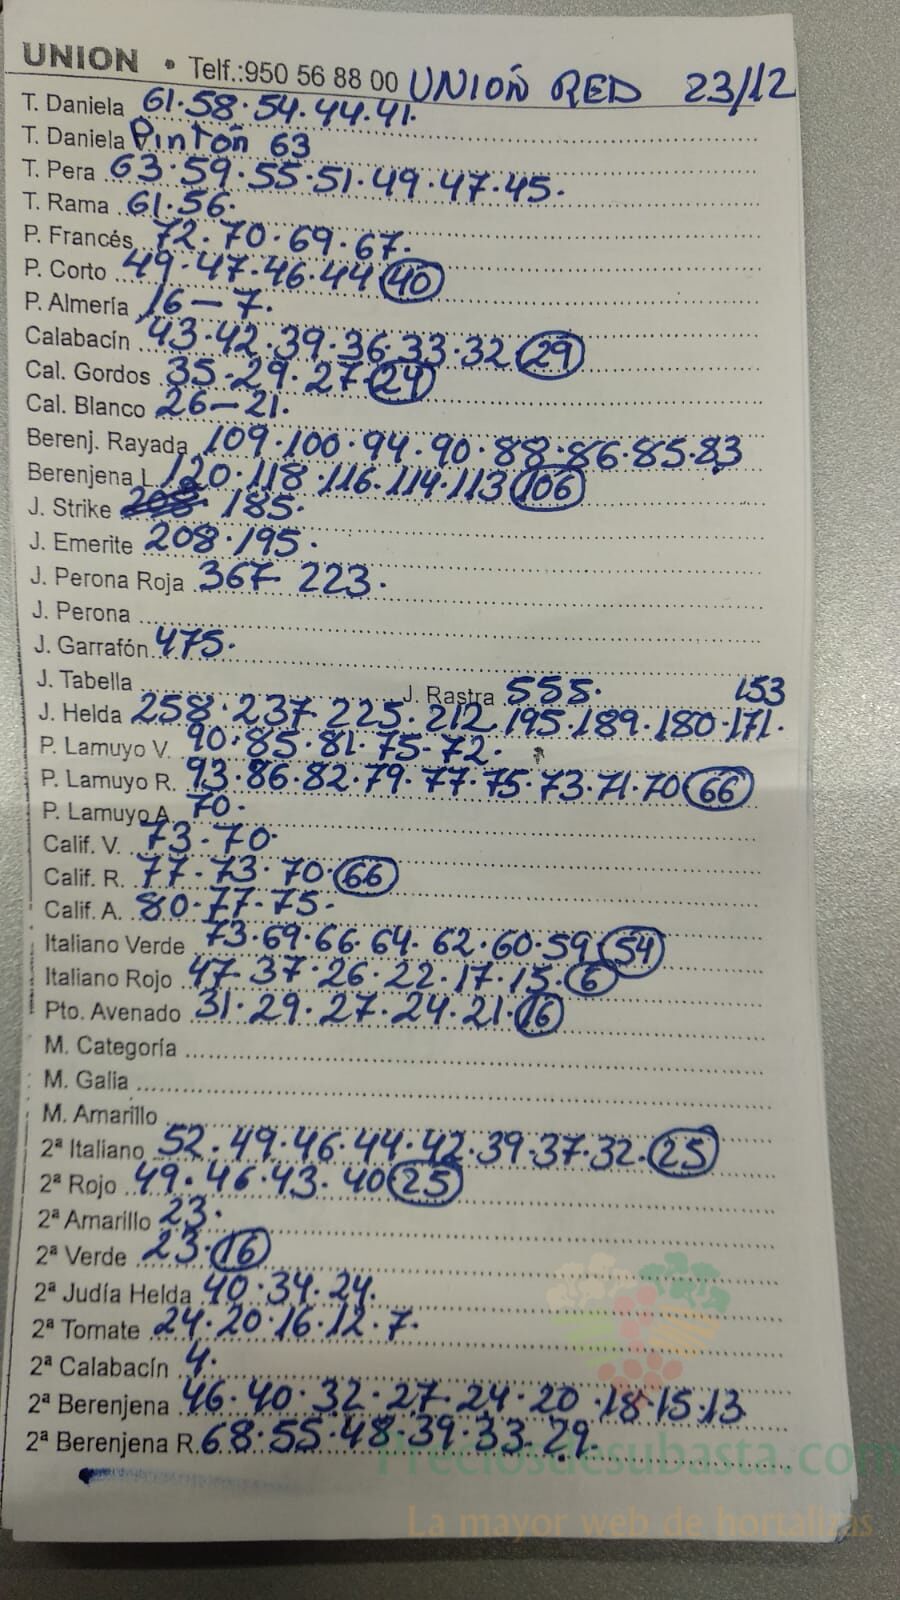 UNION • Telf.:950 56 88 00 UNIÓN RED 23/12
T. Daniela 61·58·54·44·41·
T. Daniela Pintón 63
T. Pera 63·59·55·51·49·47·45·
T. Rama 61·56·
P. Francés 72·70·69·67·
P. Corto 49·47·46·44 40
P. Almería 16–7·
Calabacín 43·42·39·36·33·32 29
Cal. Gordos 35·29·27·24
Cal. Blanco 26–21·
Berenj. Rayada 109·100·94·90·88·86·85·83
Berenjena L 120·118·116·114·113 106
J. Strike 185·
J. Emerite 208·195·
J. Perona Roja 367 223·
J. Perona
J. Garrafón 475·
J. Tabella J. Rastra 555· 153
J. Helda 258·237 225·212 195·189·180·171·
P. Lamuyo V. 90·85·81·75-72·
P. Lamuyo R. 93·86·82·79·77·75·73·71·70 66
P. Lamuyo A. 70·
Calif. V. 73·70·
Calif. R. 77-73·70·66
Calif. A. 80·77·75·
Italiano Verde 73·69·66·64·62·60·59·54
Italiano Rojo 47·37·26·22·17·15·6
Pto. Avenado 31·29·27·24·21·16
M. Categoría
M. Galia
M. Amarillo
2ª Italiano 52·49·46·44·42·39·37·32·25
2ª Rojo 49·46·43·40 25
2ª Amarillo 23·
2ª Verde 23·16
2ª Judía Helda 40·34·24·
2ª Tomate 24·20·16·12·7·
2ª Calabacín 4·
2ª Berenjena 46·40·32·27·24·20·18·15·13
2ª Berenjena R. 68·55·48·39·33·29·
Preciosdesubasta.com
La mayor web de hortalizas